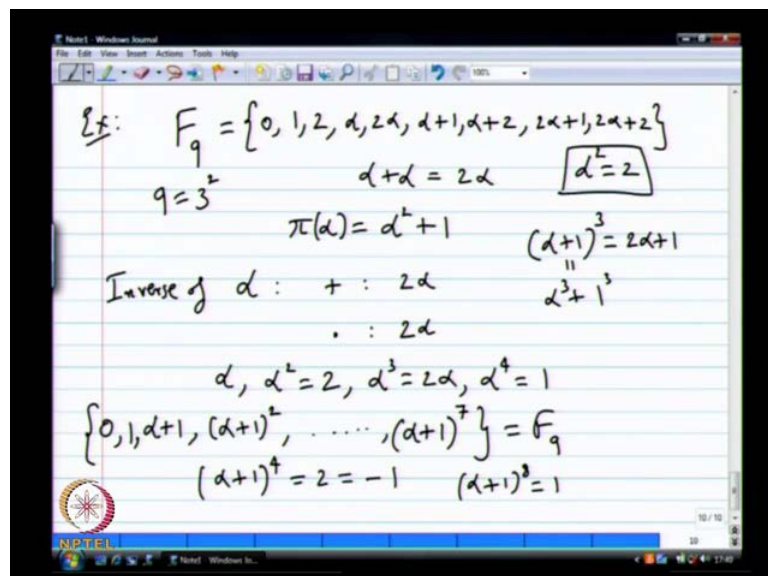 Note1 - Windows Journal
File Edit View Insert Actions Tools Help
100%
Ex: F₉ = {0, 1, 2, α, 2α, α+1, α+2, 2α+1, 2α+2}
9 = 3²
α+α = 2α
α² = 2
π(α) = α² + 1
(α+1)³ = 2α+1
=
α³ + 1³
Inverse of α : + : 2α
· : 2α
α, α² = 2, α³ = 2α, α⁴ = 1
{0, 1, α+1, (α+1)², ....., (α+1)⁷} = F₉
(α+1)⁴ = 2 = -1 (α+1)⁸ = 1
10 / 10
10
NPTEL
Note1 - Windows Jo...
17:40